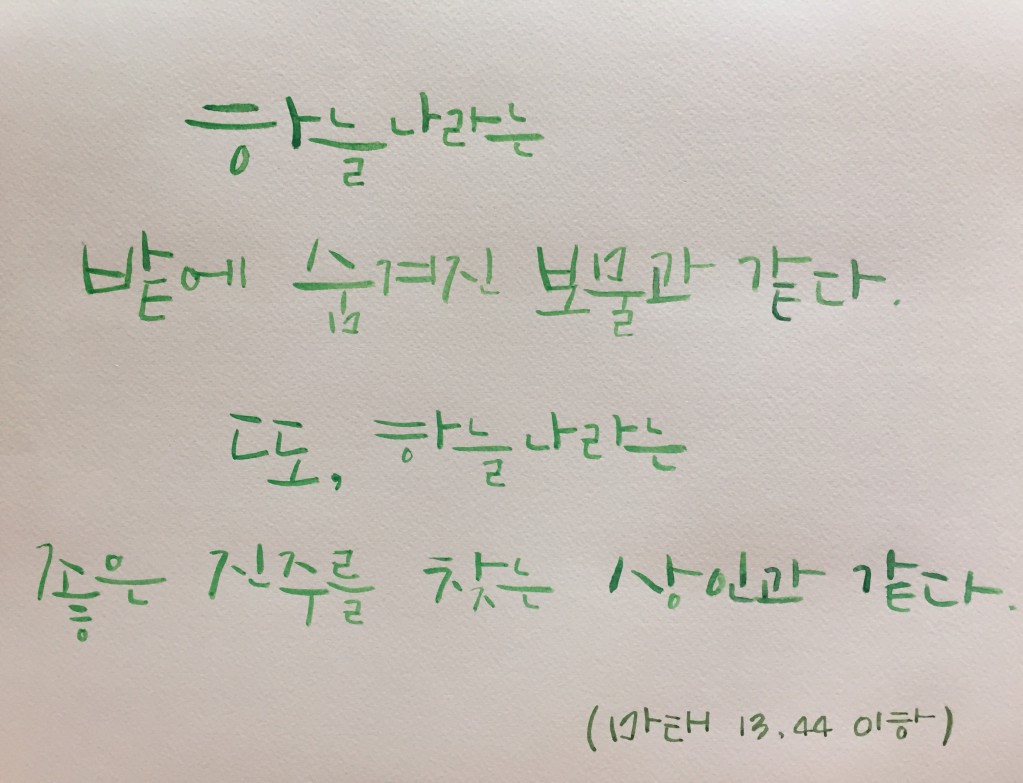 하늘나라는
밭에 숨겨진 보물과 같다.
또, 하늘나라는
좋은 진주를 찾는 상인과 같다.
(마태 13,44 이하)